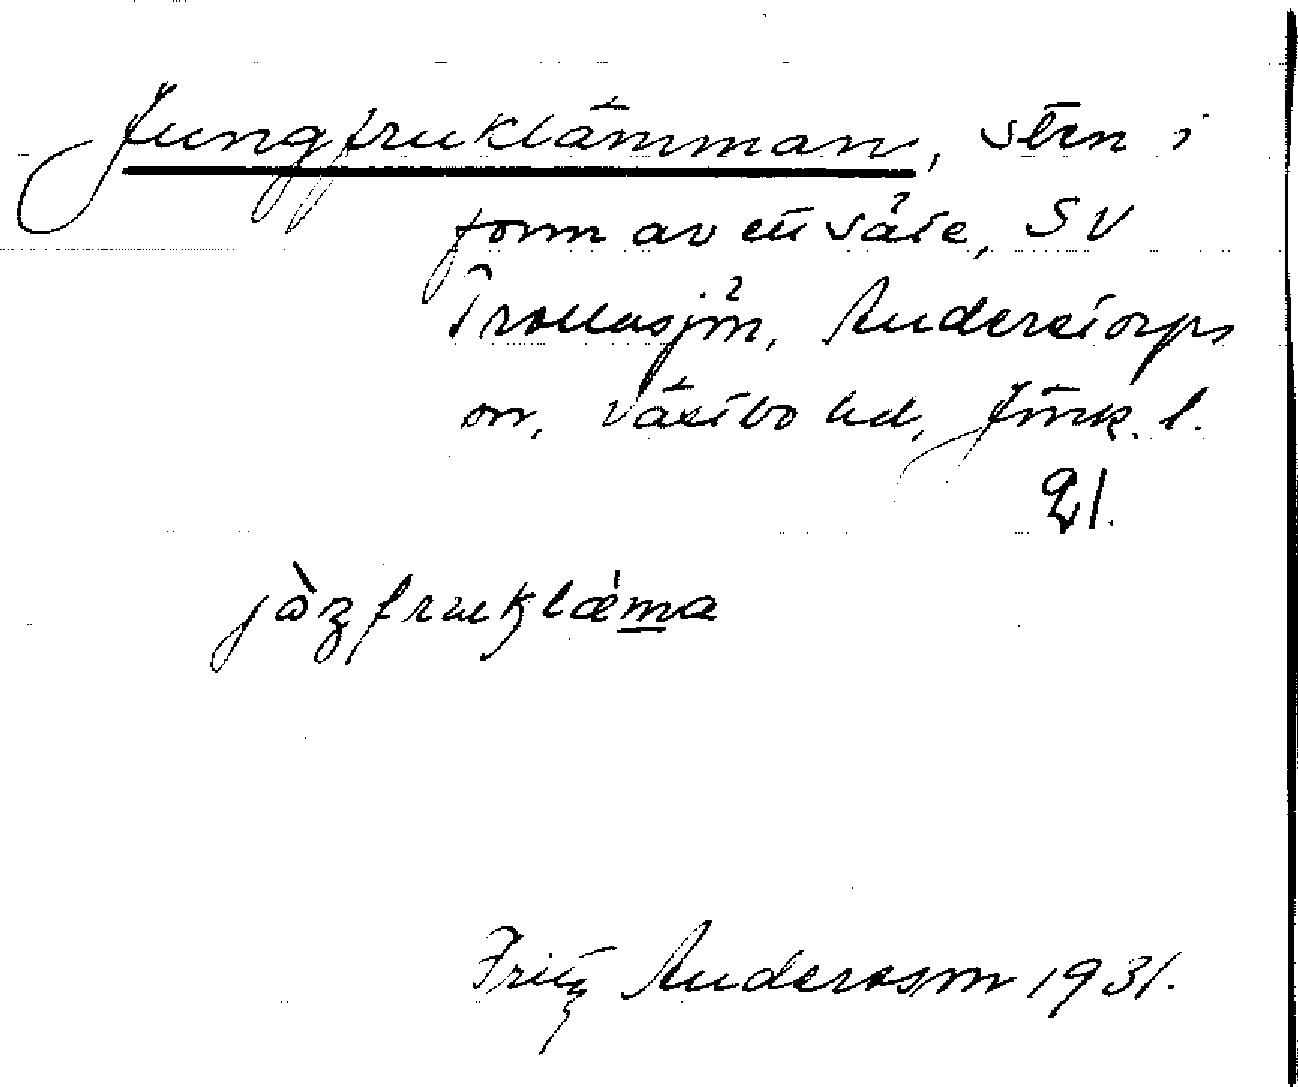 Jungfruklämman, sten i
form av ett säte, SV
Trollasjön, Anderstorps
sn, Västbo hd, Jönk. l.
21.
jòŋfrukläma
Fritz Andersson 1931.